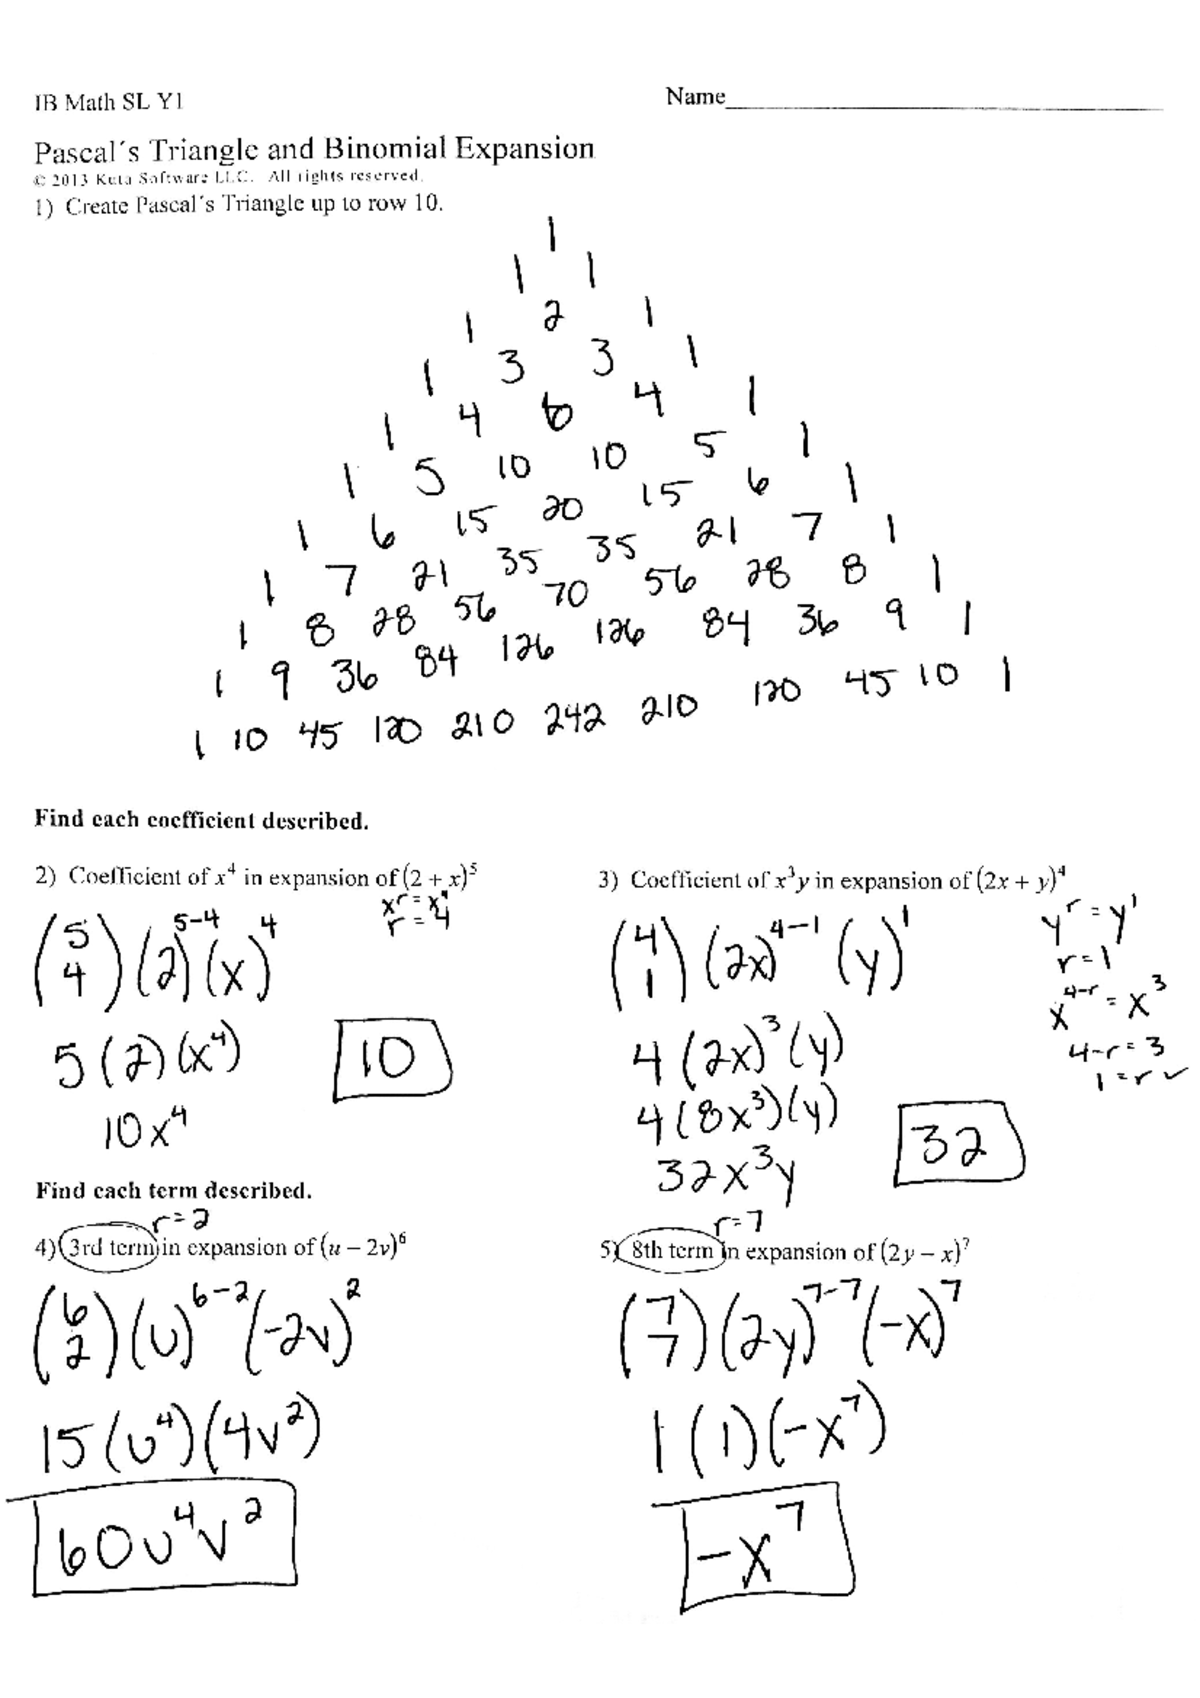 IB Math SL Y1 Name
Pascal´s Triangle and Binomial Expansion
© 2013 Kuta Software LLC. All rights reserved.
1) Create Pascal´s Triangle up to row 10.
1
1 1
1 2 1
1 3 3 1
1 4 6 4 1
1 5 10 10 5 1
1 6 15 20 15 6 1
1 7 21 35 35 21 7 1
1 8 28 56 70 56 28 8 1
1 9 36 84 126 126 84 36 9 1
1 10 45 120 210 242 210 120 45 10 1
Find each coefficient described.
2) Coefficient of x⁴ in expansion of (2 + x)⁵
xʳ = x⁴
r = 4
(5 4) (2)⁵⁻⁴ (x)⁴
5 (2) (x⁴)
10x⁴
10
3) Coefficient of x³y in expansion of (2x + y)⁴
(4 1) (2x)⁴⁻¹ (y)¹
4 (2x)³ (y)
4 (8x³)(y)
32x³y
32
yʳ = y¹
r = 1
x⁴⁻ʳ = x³
4-r = 3
1 = r ✓
Find each term described.
r = 2
4) 3rd term in expansion of (u – 2v)⁶
(6 2) (u)⁶⁻² (-2v)²
15 (u⁴)(4v²)
60u⁴v²
r = 7
5) 8th term in expansion of (2y – x)⁷
(7 7) (2y)⁷⁻⁷ (-x)⁷
1 (1)(-x⁷)
-x⁷